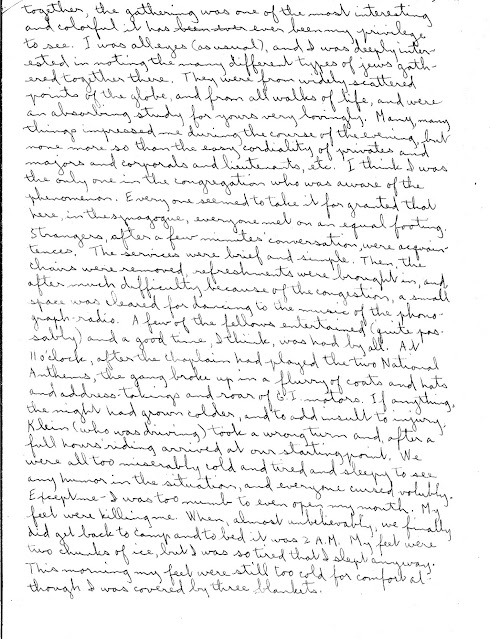 together, the gathering was one of the most interesting
and colorful it has been ever ever been my privilege
to see. I was all eyes (as usual), and I was deeply inter-
ested in noting the many different types of jews gath-
ered together there. They were from widely scattered
points of the globe, and from all walks of life, and were
an absorbing study for yours very lovingly. Many, many
things impressed me during the course of the evening, but
none more so than the easy cordiality of privates and
majors and corporals and lieutenants, etc. I think I was
the only one in the congregation who was aware of the
phenomenon. Every one seemed to take it for granted that
here, in the synagogue, everyone met on an equal footing.
Strangers, after a few minutes' conversation, were acquain-
tences. The services were brief and simple. Then the
chairs were removed, refreshments were brought in, and
after much difficulty, because of the congestion, a small
space was cleared for dancing to the music of the phono-
graph-radio. A few of the fellows entertained (quite pas-
sably) and a good time, I think, was had by all. At
11 o'clock, after the Chaplain had played the two National
Anthems, the gang broke up in a flurry of coats and hats
and address-takings and roar of G.I. motors. If anything,
the night had grown colder, and to add insult to injury,
Klein (who was driving) took a wrong turn and, after a
full hours' riding arrived at our starting point. We
were all too miserably cold and tired and sleepy to see
any humor in the situation, and everyone cursed volubly.
Except me - I was too numb to even open my mouth. My
feet were killing me. When, almost unbelievably, we finally
did get back to camp and to bed it was 2 A.M. My feet were
two chunks of ice, but I was so tired that I slept anyway.
This morning my feet were still too cold for comfort al-
though I was covered by three blankets.